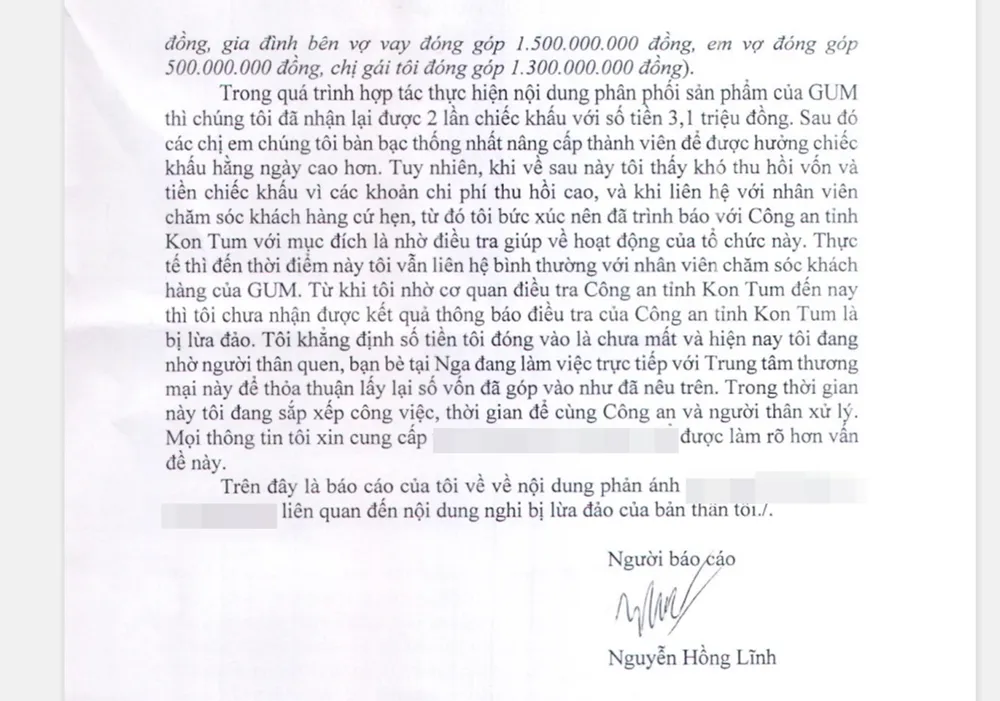 đồng, gia đình bên vợ vay đóng góp 1.500.000.000 đồng, em vợ đóng góp
500.000.000 đồng, chị gái tôi đóng góp 1.300.000.000 đồng).
Trong quá trình hợp tác thực hiện nội dung phân phối sản phẩm của GUM
thì chúng tôi đã nhận lại được 2 lần chiếc khấu với số tiền 3,1 triệu đồng. Sau đó
các chị em chúng tôi bàn bạc thống nhất nâng cấp thành viên để được hưởng chiếc
khấu hằng ngày cao hơn. Tuy nhiên, khi về sau này tôi thấy khó thu hồi vốn và
tiền chiếc khấu vì các khoản chi phí thu hồi cao, và khi liên hệ với nhân viên
chăm sóc khách hàng cứ hẹn, từ đó tôi bức xúc nên đã trình báo với Công an tỉnh
Kon Tum với mục đích là nhờ điều tra giúp về hoạt động của tổ chức này. Thực
tế thì đến thời điểm này tôi vẫn liên hệ bình thường với nhân viên chăm sóc khách
hàng của GUM. Từ khi tôi nhờ cơ quan điều tra Công an tỉnh Kon Tum đến nay
thì tôi chưa nhận được kết quả thông báo điều tra của Công an tỉnh Kon Tum là
bị lừa đảo. Tôi khẳng định số tiền tôi đóng vào là chưa mất và hiện nay tôi đang
nhờ người thân quen, bạn bè tại Nga đang làm việc trực tiếp với Trung tâm thương
mại này để thỏa thuận lấy lại số vốn đã góp vào như đã nêu trên. Trong thời gian
này tôi đang sắp xếp công việc, thời gian để cùng Công an và người thân xử lý.
Mọi thông tin tôi xin cung cấp được làm rõ hơn vấn
đề này.
Trên đây là báo cáo của tôi về về nội dung phản ánh
liên quan đến nội dung nghi bị lừa đảo của bản thân tôi./.
Người báo cáo
Nguyễn Hồng Lĩnh